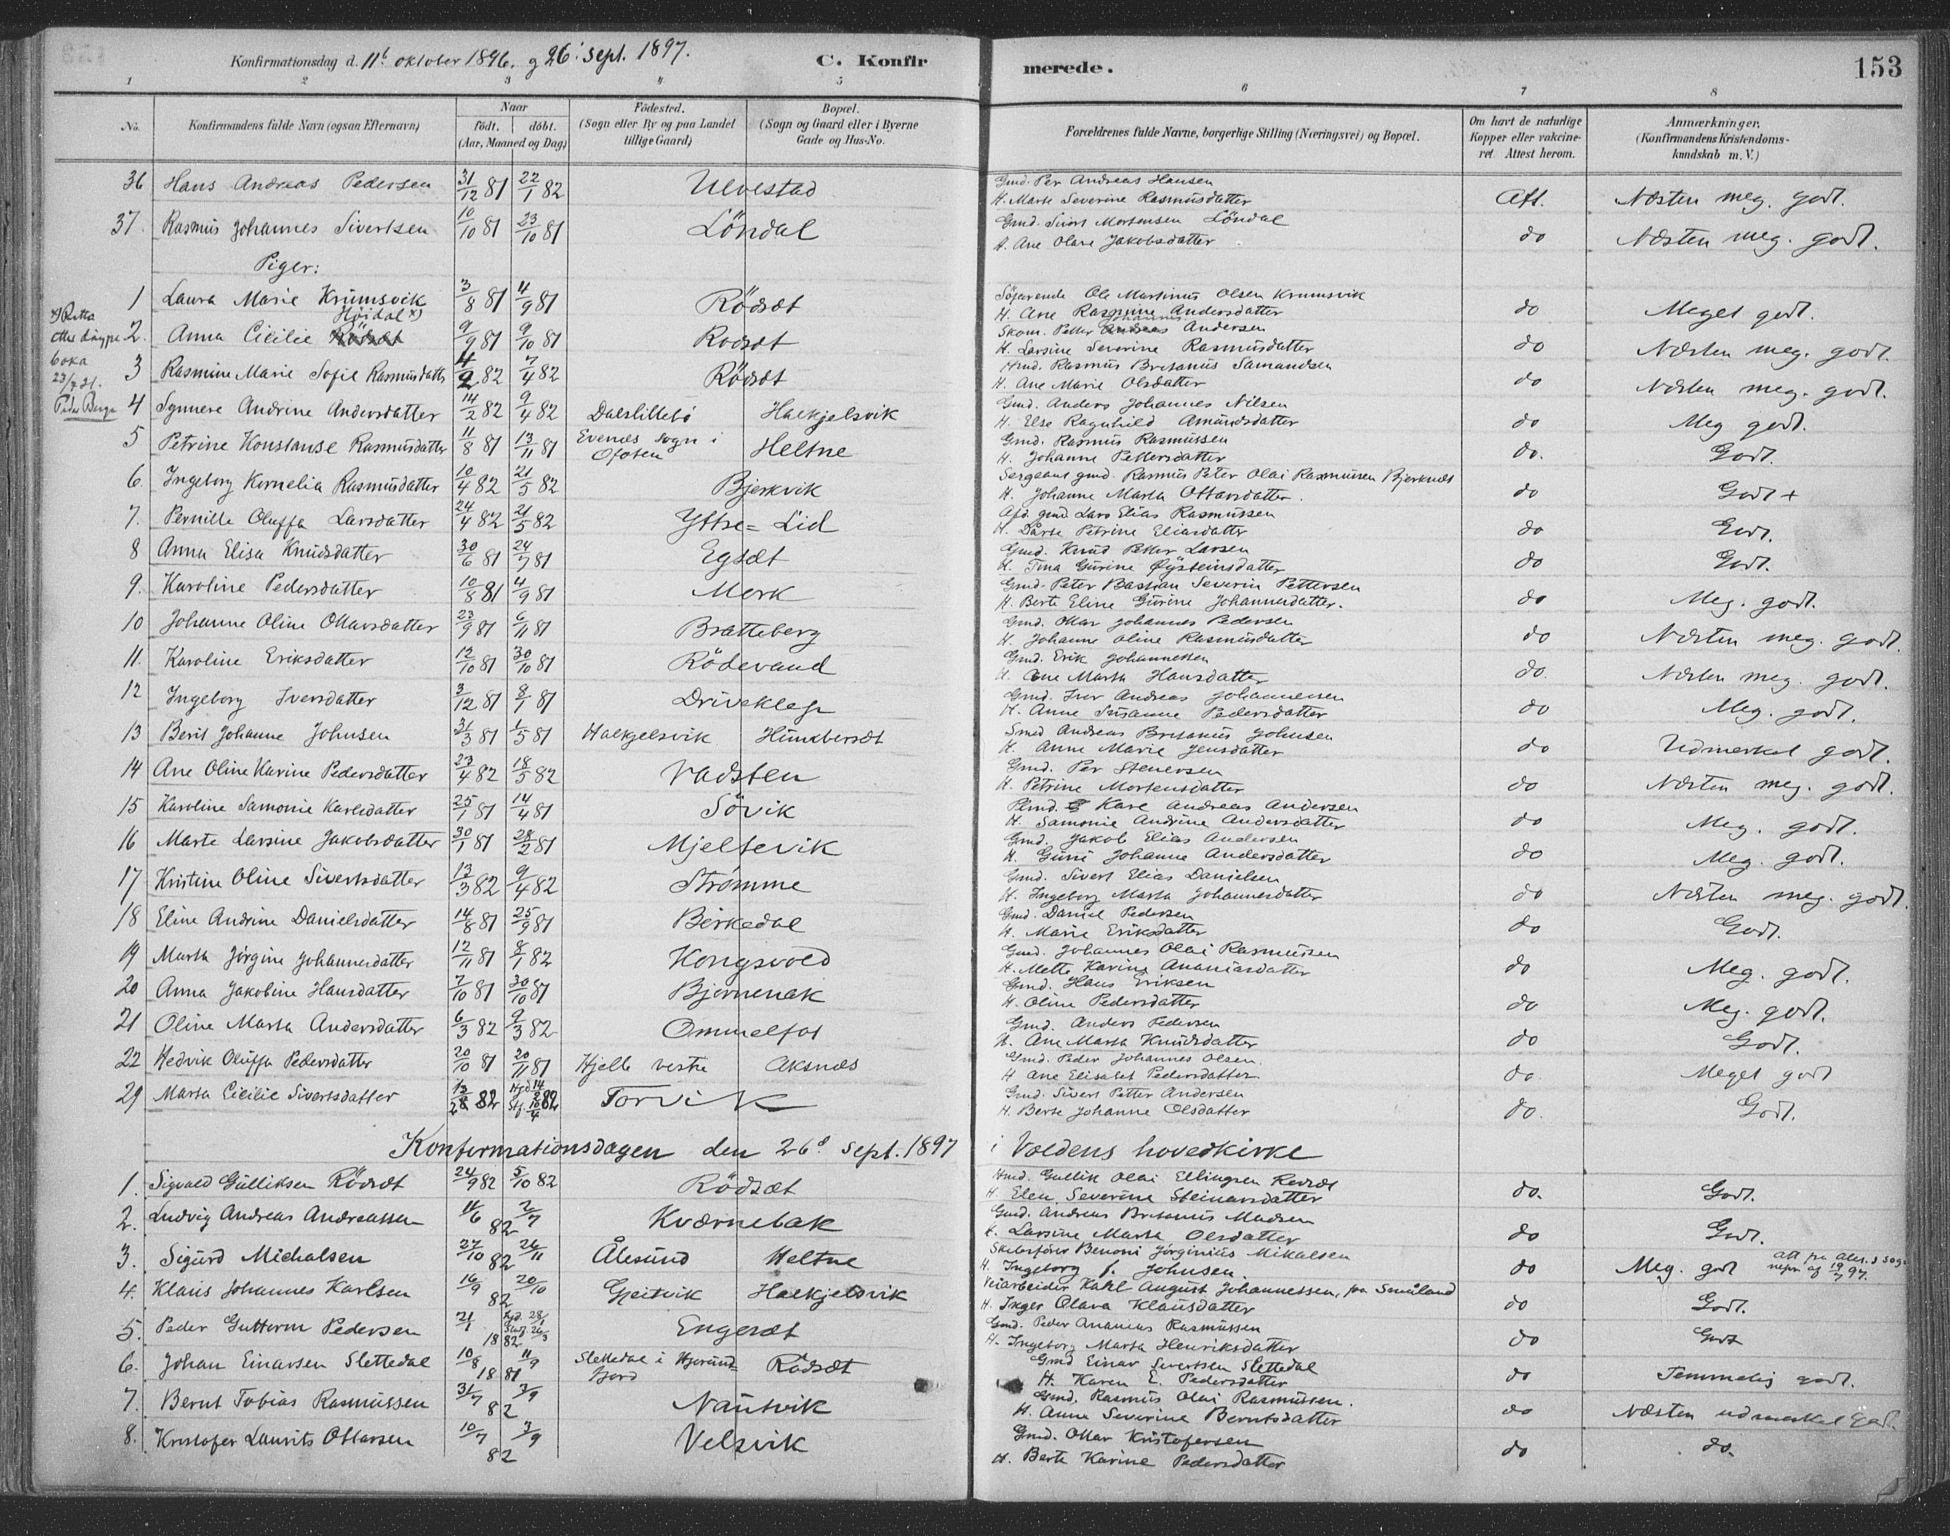 Konfirmationsdag d. 11te oktober 1896. og 26. sept. 1897. C. Konfirmerede. 153
1 2 3 4 5 6 7 8
No. Konfirmandens fulde Navn (ogsaa Efternavn) Naar født. døbt. (Aar, Maaned og Dag) Födested. (Sogn eller By og paa Landet tillige Gaard) Bopæl. (Sogn og Gaard eller i Byerne Gade og Hus-No. Forældrenes fulde Navne, borgerlige Stilling (Næringsvei) og Bopæl. Om havt de naturlige Kopper eller vakcineret. Attest herom. Anmærkninger, (Konfirmandens Kristendomskundskab m. V.)
36 Hans Andreas Pedersen 31/12 81 22/1 82 Ulvestad Gmd. Per Andreas Hansen
H. Marte Severine Rasmusdatter Att. Næsten meg. godt.
37. Rasmus Johannes Sivertsen 10/10 81 23/10 81 Löndal Gmd. Sivert Mortensen Löndal
H. Ane Olave Jakobsdatter do Næsten meg. godt.
Piger:
1 Laura Marie Krumsvik 3/8 81 4/9 81 Rödsæt Söfarende Ole Martinus Olsen Krumsvik
H. Ane Rasmine Andersdatter do Meget godt.
Höidal x)
2. Anna Cicilie Rödsæt 9/9 81 9/10 81 Rödsæt Skom. Petter Johannes Andersen
H. Larsine Severine Rasmusdatter do Næsten meg. godt.
x) Retta etter dåyps boka 23/7 31. Peder Berge
3 Rasmine Marie Sofie Rasmusdatter 4/2 82 7/4 82 Rödsæt Hmd. Rasmus Britanus Samandsen
H. Ane Marie Olsdatter do Næsten meg. godt.
4 Synnere Andrine Andersdatter 14/2 82 9/4 82 Dalslillebö Haekjelsvik Gmd. Anders Johannes Nilsen
H. Else Ragnhild Amundsdatter do Meg godt.
5 Petrine Konstanse Rasmusdatter 11/8 81 13/11 81 Evenes Sogn i Ofoten Heltne Gmd. Rasmus Rasmussen
H. Johanne Pettersdatter do. Godt.
6. Ingeborg Kornelia Rasmusdatter 10/4 82 21/5 82 Bjerkvik Sergeant gmd. Rasmus Peter Olai Rasmussen Bjerknes
H. Johanne Marta Ottarsdatter. do Godt +
7. Pernille Oluffa Larsdatter 24/4 82 21/5 82 Yttre=Lid Afd. gmd Lars Elias Rasmussen
H. Dorte Petrine Eliasdatter do Godt.
8 Anna Elisa Knudsdatter 30/6 81 24/7 81 Egsæt Gmd. Knud Petter Larsen
H. Tina Gurine Øysteinsdatter do Godt.
9. Karoline Pedersdatter 10/8 81 4/9 81 Mork Gmd. Peter Bastian Severin Pettersen
H. Berte Eline Gurine Johannesdatter. do Meg. godt.
10 Johanne Oline Ottarsdatter 23/9 81 6/11 81 Bratteberg Gmd. Ottar Johannes Pedersen
H. Johanne Oline Rasmusdatter do Næsten meg. godt.
11. Karoline Eriksdatter 12/10 81 30/10 81 Rödevand Gmd. Erik Johannessen
H. Ane Marta Hansdatter do. Næsten meg. godt.
12 Ingeborg Iversdatter 3/12 81 8/1 81 Driveklep Gmd. Iver Andreas Johannessen
H. Anne Susanne Pedersdatter do Meg. godt.
13 Berit Johanne Johnsen 31/3 81 1/5 81 Haekjelsvik Humbersæt Smed Andreas Britanus Johnsen
H. Anne Marie Jensdatter do Udmerket godt.
14 Ane Oline Karine Pedersdatter 23/4 82 18/5 82 Vadsten Gmd. Per Stenersen
H. Petrine Mortensdatter do Næsten meg. godt.
15 Karoline Samonie Karlsdatter 25/1 81 14/4 81 Sövik Plmd. Karl Andreas Andersen
H. Samonie Andrine Andersdatter do Meg. godt.
16 Marte Larsine Jakobsdatter 30/1 81 28/2 81 Mjeltevik Gmd. Jakob Elias Andersen
H. Guni Johanne Andersdatter do Meg. godt.
17 Kristine Oline Sivertsdatter 13/3 82 9/4 82 Strømme Gmd. Sivert Elias Danielsen
H. Ingeborg Marta Johannesdatter do Næsten meg. godt.
18 Eline Andrine Danielsdatter 14/8 81 25/9 81 Birkedal Gmd. Daniel Pedersen
H. Marie Eriksdatter do Godt.
19 Marta Jörgine Johannesdatter 12/11 81 8/1 82 Kongsvold Gmd. Johannes Olai Rasmussen
H. Mette Karine Ananiasdatter do Meg. godt.
20 Anna Jakobine Hansdatter 7/10 81 30/10 81 Bjørnenak Gmd. Hans Eriksen
H. Oline Pedersdatter do Meg. godt.
21 Oline Marta Andersdatter 6/3 82 9/3 82 Ommelfot Gmd. Anders Pedersen
H. Ane Marta Knudsdatter do Godt.
22 Hedvik Oluffa Pedersdatter 20/10 81 20/11 81 Hjelle vestre Aksnes Gmd. Peder Johannes Olsen
H Ane Elisabet Pedersdatter do Meget godt
29 Marta Cicilie Sivertsdatter 13/2 82 Hjd. 14/2 Stf. 10/4 82 Torvik Gmd. Sivert Petter Andersen
H. Berte Johanne Olsdatter do. Godt.
Konfirmationsdagen den 26de sept. 1897 i Voldens hovedkirke
1. Sigvald Gulliksen Rödsæt 24/9 82 5/10 82 Rödsæt Hmd. Gullik Olai Ellingsen Rödsæt
H. Elen Severine Steinarsdatter do. Godt.
2. Ludvig Andreas Andreassen 11/6 2/7 82 Kvernebak Gmd. Andreas Britanus Madsen
H. Larsine Marta Olsdatter do Godt.
3. Sigurd Michalsen 27/10 26/11 82 Ålesund Heltne Skibsfører Benoni Jörginius Mikalsen
H. Ingeborg f. Johnsen. do Meg. godt att fra Ales.s sogn nepr. af 19/7 97.
4. Klaus Johannes Karlsen 16/9 20/10 82 Gjeitvik Haekjelsvik Veiarbeider Karl August Johannessen, fra Småland
H. Inger Olava Klausdatter do Godt.
5. Peder Guttorm Pedersen 21/1 Hjd. 28/1 Stadf. 26/3 1882 Engesæt Gmd. Peder Ananias Rasmussen
H. Ingeborg Marta Henriksdatter do Godt
6. Johan Einarsen Slettedal 10/8 11/9 1881 Slettedal i Hjørundfjord Rödsæt Gmd Einar Sivertsen Slettedal
H. Karen E. Pedersdatter do Temmelig godt.
7. Bernt Tobias Rasmussen 31/7 3/9 82 Nautvik Gmd. Rasmus Olai Rasmussen.
H. Anne Severine Berntsdatter do Næsten udmerket godt.
8. Kristofer Laurits Ottarsen 10/7 3/9 82 Velsvik Gmd. Ottar Kristofersen
H. Berte Karine Pedersdatter do do.